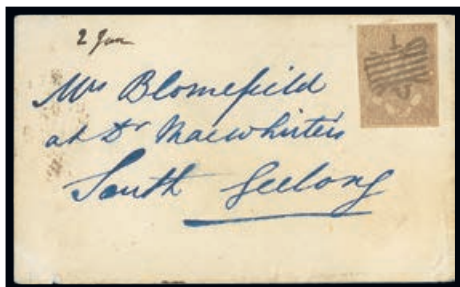 2 Jan
Mrs Blomefield
at Dr Macwhirter's
South Geelong